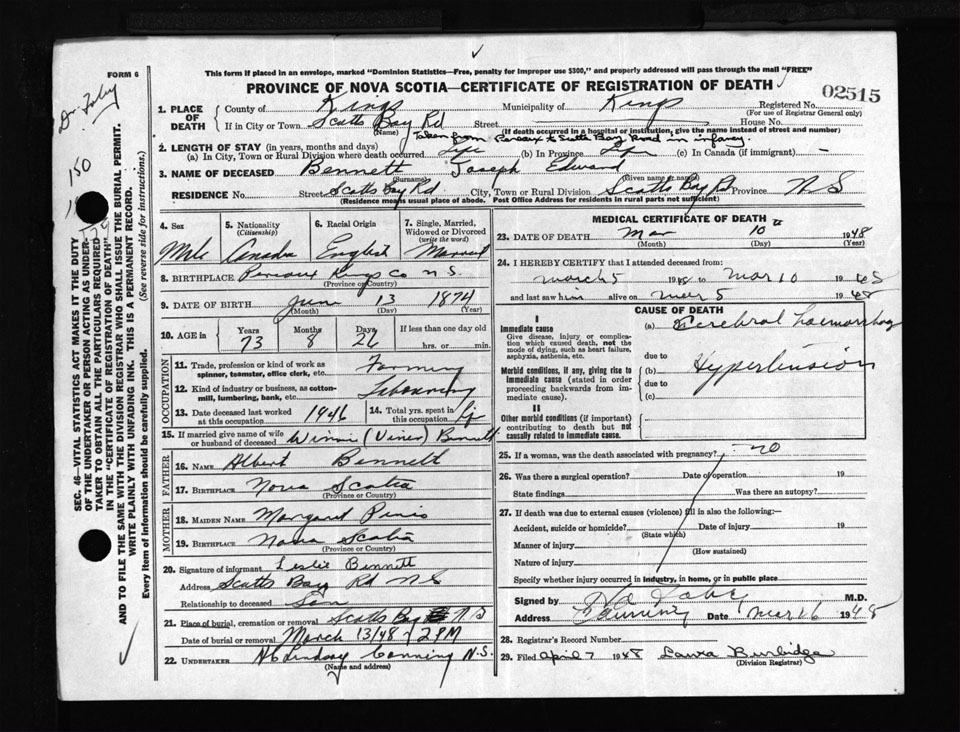 FORM 6
This form if placed in an envelope, marked "Dominion Statistics—Free, penalty for improper use $300," and properly addressed will pass through the mail "FREE"
PROVINCE OF NOVA SCOTIA—CERTIFICATE OF REGISTRATION OF DEATH
02515
1. PLACE OF DEATH
County of Kings Municipality of Kings Registered No.
(For use of Registrar General only)
If in City or Town Scotts Bay Rd Street House No.
(Name) (If death occurred in a hospital or institution, give the name instead of street and number)
taken from Pereaux to Scotts Bay Road in infancy.
2. LENGTH OF STAY (in years, months and days)
(a) In City, Town or Rural Division where death occurred Life (b) In Province Life (c) In Canada (if immigrant) -
3. NAME OF DECEASED Bennett Joseph Edward
(Surname) (Given name or names)
RESIDENCE No. Street Scotts Bay Rd City, Town or Rural Division Scotts Bay Rd Province N S
(Residence means usual place of abode. Post Office Address for residents in rural parts not sufficient)
4. Sex Male
5. Nationality (Citizenship)
6. Racial Origin English
7. Single, Married, Widowed or Divorced (write the word) Married
8. BIRTHPLACE Pereaux Kings Co N S.
(Province or Country)
9. DATE OF BIRTH June 13 1874
(Month) (Day) (Year)
10. AGE in Years 73 Months 8 Days 26 If less than one day old
hrs. or min.
OCCUPATION
11. Trade, profession or kind of work as spinner, teamster, office clerk, etc. Farming
12. Kind of industry or business, as cotton-mill, lumbering, bank, etc. Labouring
13. Date deceased last worked at this occupation 1946
14. Total yrs. spent in this occupation Life
15. If married give name of wife or husband of deceased Winnie (Viner) Bennett
FATHER
16. NAME Albert Bennett
17. BIRTHPLACE Nova Scotia
(Province or Country)
MOTHER
18. MAIDEN NAME Margaret
19. BIRTHPLACE Nova Scotia
(Province or Country)
20. Signature of informant Leslie Bennett
Address Scotts Bay Rd N S
Relationship to deceased Son
21. Place of burial, cremation or removal Scotts Bay N S
Date of burial or removal March 13/48 - 2 PM
22. UNDERTAKER Lindsay Canning N.S.
(Name and address)
MEDICAL CERTIFICATE OF DEATH
23. DATE OF DEATH Mar 10th 1948
(Month) (Day) (Year)
24. I HEREBY CERTIFY that I attended deceased from:
March 5 1948 to Mar 10 1948
and last saw him alive on Mar 5 1948
CAUSE OF DEATH
I
Immediate cause
Give disease, injury or complication which caused death, not the mode of dying, such as heart failure, asphyxia, asthenia, etc.
(a) Cerebral haemorrhage
due to
Morbid conditions, if any, giving rise to immediate cause (stated in order proceeding backwards from immediate cause).
(b) Hypertension
due to
(c)
II
Other morbid conditions (if important) contributing to death but not causally related to immediate cause.
25. If a woman, was the death associated with pregnancy? no
26. Was there a surgical operation? Date of operation 19
State findings Was there an autopsy?
27. If death was due to external causes (violence) fill in also the following:—
Accident, suicide or homicide? Date of injury 19
(State which)
Manner of injury
(How sustained)
Nature of injury
Specify whether injury occurred in industry, in home, or in public place
Signed by M.D.
Address Canning Date Mar 16 1948
28. Registrar's Record Number
29. Filed April 7 1948 Laura Burbidge
(Division Registrar)
SEC. 46—VITAL STATISTICS ACT MAKES IT THE DUTY
OF THE UNDERTAKER OR PERSON ACTING AS UNDER-
TAKER TO OBTAIN ALL THE PARTICULARS REQUIRED
IN THE "CERTIFICATE OF REGISTRATION OF DEATH"
AND TO FILE THE SAME WITH THE DIVISION REGISTRAR WHO SHALL ISSUE THE BURIAL PERMIT.
WRITE PLAINLY WITH UNFADING INK. THIS IS A PERMANENT RECORD.
Every item of information should be carefully supplied. (See reverse side for instructions.)
150